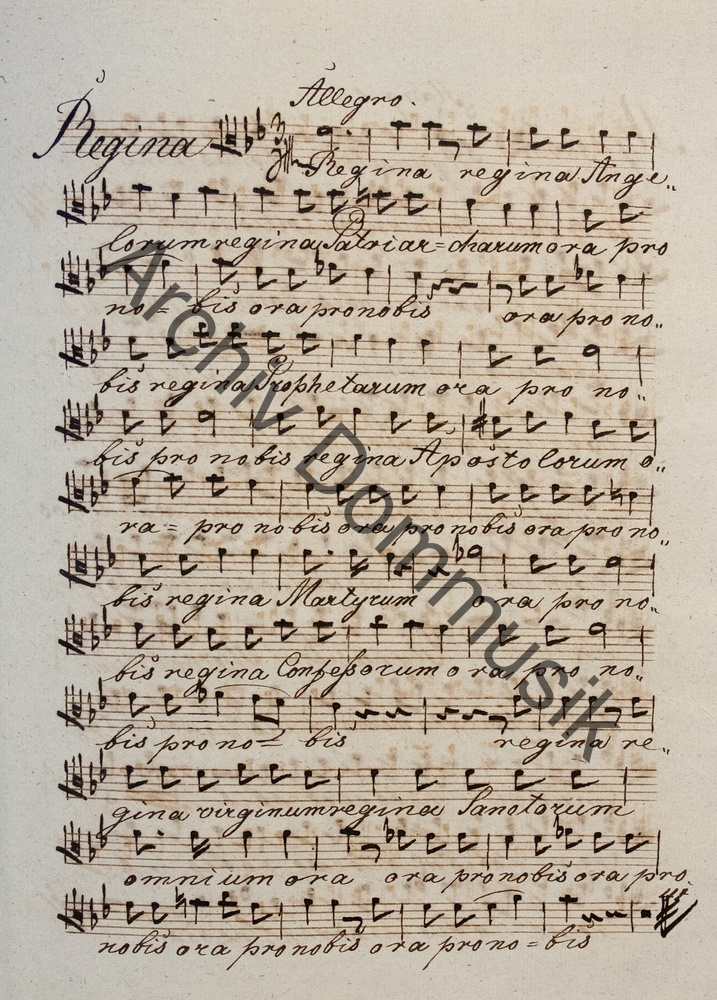 Allegro.
Regina
Regina regina Ange„
lorum regina Patriar= charum ora pro
no= bis ora pro nobis ora pro no„
bis regina Prophetarum ora pro no„
bis pro nobis regina Apostolorum o„
ra= pro nobis ora pro nobis ora pro no„
bis regina Martyrum ora pro no„
bis regina Confessorum ora pro no„
bis pro no= bis regina re„
gina virginum regina Sanctorum
omnium ora ora pro nobis ora pro
nobis ora pro nobis ora pro no= bis
Archiv Dommusik